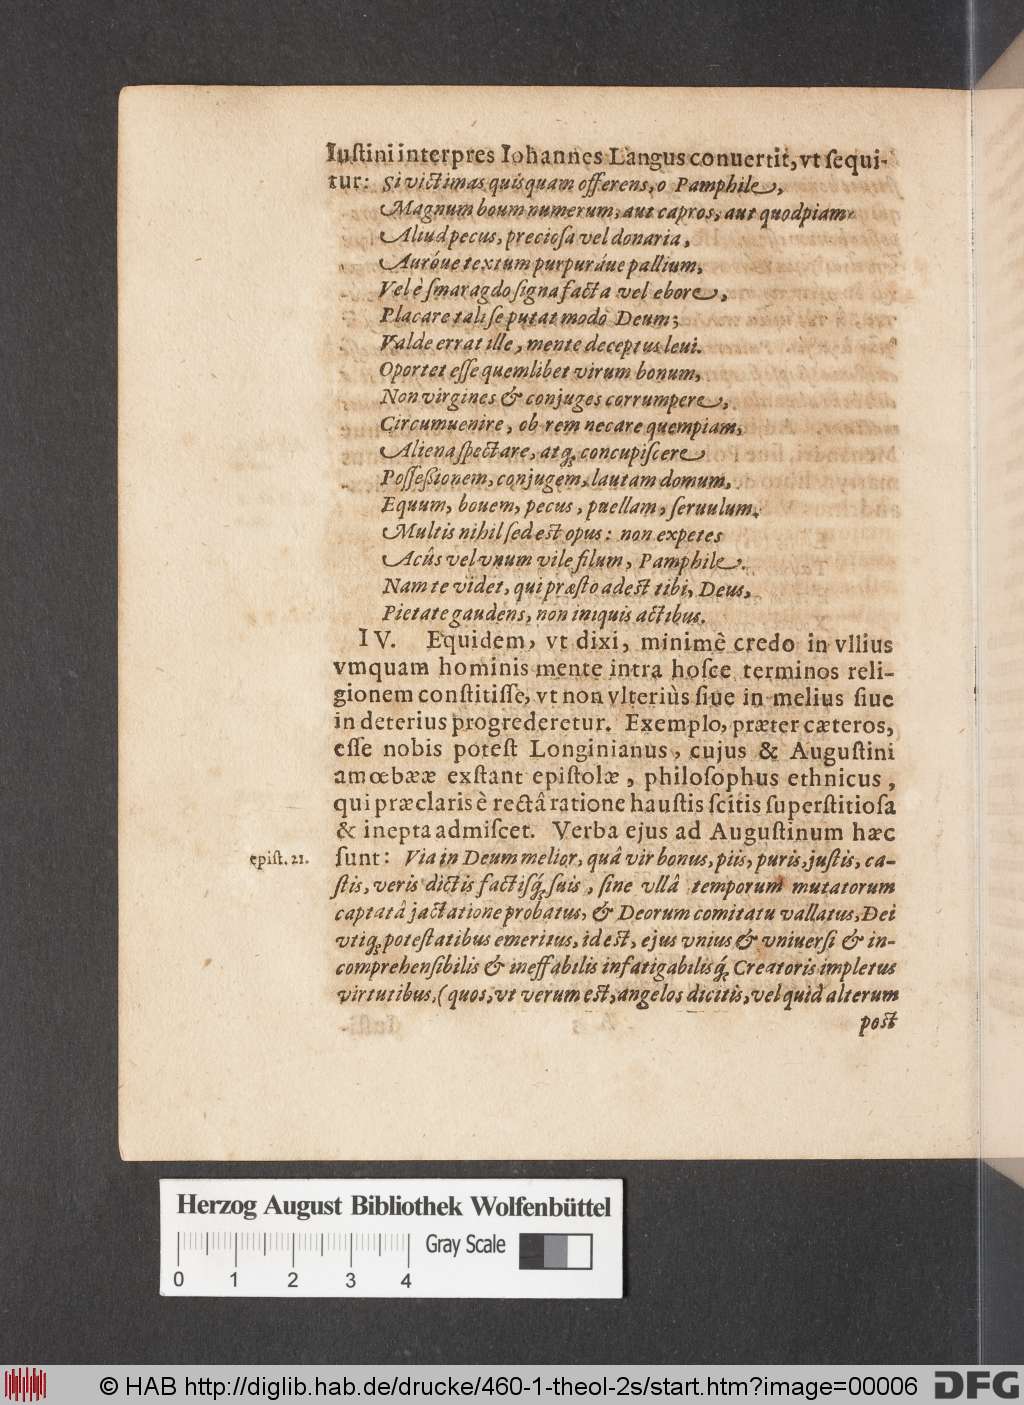 Iuſtini interpres Iohannes Langus conuertit, vt ſequi-
tur: Si victimas quisquam offerens, o Pamphile,
Magnum boum numerum, aut capros, aut quodpiam
Aliud pecus, precioſa vel donaria,
Auróue textum purpuráue pallium,
Vel è ſmaragdo ſigna facta vel ebore,
Placare tali ſe putat modo Deum;
Valde errat ille, mente deceptus leui.
Oportet eſſe quemlibet virum bonum,
Non virgines & conjuges corrumpere,
Circumuenire, ob rem necare quempiam,
Aliena ſpectare, atq; concupiſcere
Poſſeßionem, conjugem, lautam domum,
Equum, bouem, pecus, puellam, ſeruulum,
Multis nihil ſed est opus: non expetes
Acûs vel vnum vile filum, Pamphile.
Nam te videt, qui præſto adest tibi, Deus,
Pietate gaudens, non iniquis actibus.
IV. Equidem, vt dixi, minimè credo in vllius
vmquam hominis mente intra hoſce terminos reli-
gionem conſtitiſſe, vt non vlteriùs ſiue in melius ſiue
in deterius progrederetur. Exemplo, præter cæteros,
eſſe nobis poteſt Longinianus, cujus & Auguſtini
amœbææ exſtant epiſtolæ, philoſophus ethnicus,
qui præclaris è rectâ ratione hauſtis ſcitis ſuperſtitioſa
& inepta admiſcet. Verba ejus ad Auguſtinum hæc
epiſt. 21. ſunt: Via in Deum melior, quâ vir bonus, piis, puris, juſtis, ca-
ſtis, veris dictis factiſq; ſuis, ſine vllâ temporum mutatorum
captatâ jactatione probatus, & Deorum comitatu vallatus, Dei
vtiq; potestatibus emeritus, id est, ejus vnius & vniuerſi & in-
comprehenſibilis & ineffabilis infatigabilisq; Creatoris impletus
virtutibus, (quos, vt verum est, angelos dicitis, vel quid alterum
post
Herzog August Bibliothek Wolfenbüttel
0 1 2 3 4 Gray Scale
© HAB http://diglib.hab.de/drucke/460-1-theol-2s/start.htm?image=00006 DFG